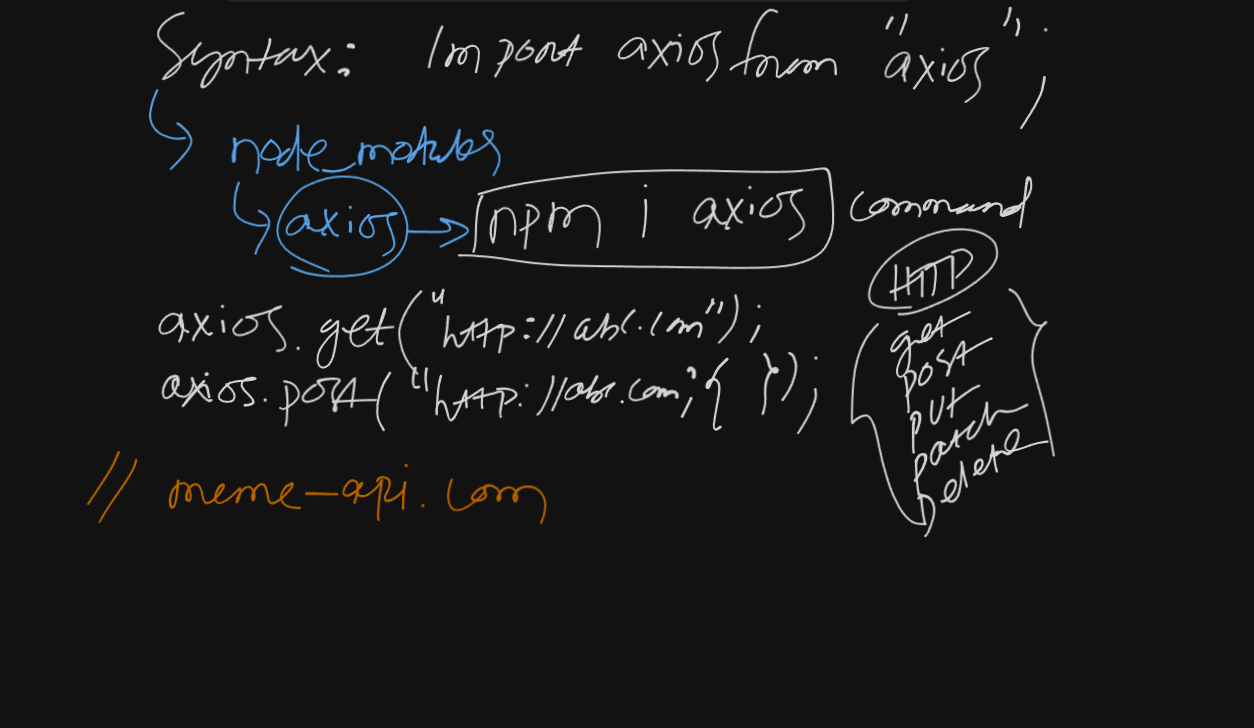 Syntax: Import axios from "axios";
node_modules
axios → npm i axios command
HTTP
axios.get("http://abc.com");
axios.post("http://abc.com",{ });
get
post
put
patch
Delete
// meme-api.com